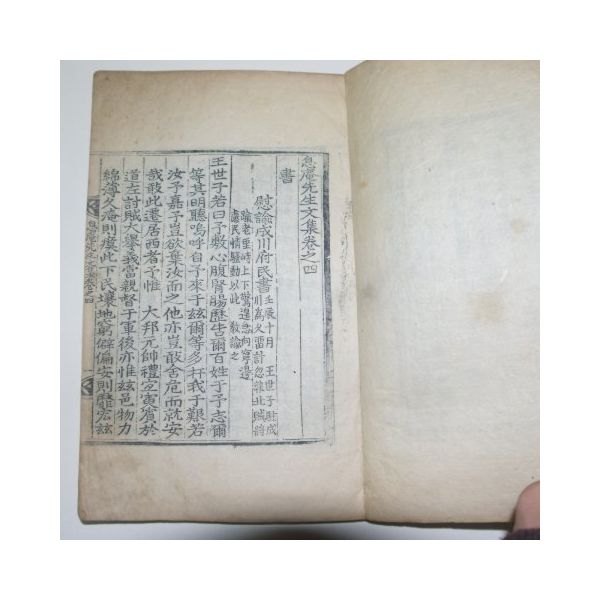 息庵先生文集卷之四
書
慰諭成川府民書
壬辰十月 王世子駐成
川爲火雷計忽聞北賊將
踰老里峙上下驚遑急向寧邊
慮民情騷動以此 敎諭之
王世子若曰予敷心腹腎腸歷告爾百姓于予志爾
等其明聽嗚呼自予來于玆爾等多捍我于艱若
汝予嘉予豈欲棄汝而之他亦豈敢舍危而就安
哉敢此遷居西者予惟 大邦元帥禮宜寅賓於
道左討賊大擧義當親督于軍後亦惟玆邑物力
綿薄久淹則瘼此下民壤地窮僻偏安則 宏玆
息庵先生文集卷之四
一